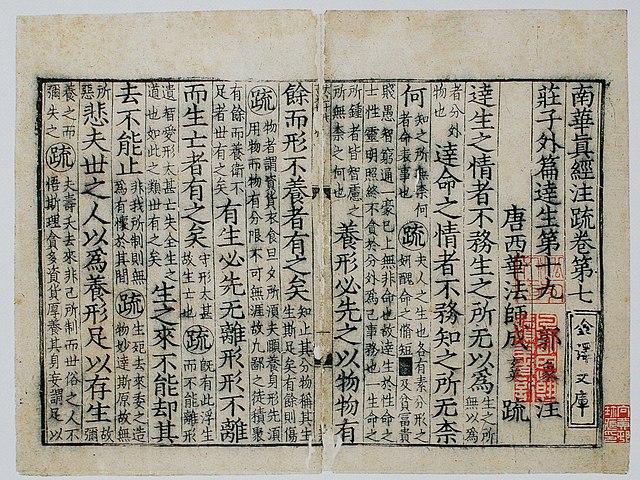 南華真經注疏卷第七
莊子外篇達生第十九 郭 注
唐西華法師成 疏
金澤文庫
達生之情者不務生之所无以為生之所無以為
者分外物也達命之情者不務知之所无柰
何知之所無柰何者命表事也疏夫人之生也各有素分形之妍醜命之脩短及貧富貴
賤愚智窮通一豪已上無非命也故達生於性命之士性靈明照終不貪於分外為己事務也一生命之
所鍾者皆智慮之所無柰之何也養形必先之以物物有
餘而形不養者有之矣知止其分物稱其生生斯足矣有餘則傷
疏物者謂資貨衣食旦夕所須夫頤養身形先須用物而物有分限不可無涯故九鄙之徒積聚
有餘而養衛不足者世有之矣有生必先无離形形不離
而生亡者有之矣守形太甚故生亡也疏既有此浮生而不能離形
遺智愛形太甚亡失全生之道也如此之類世有之矣生之來不能却其
去不能止非我所制則無為有懷於其間疏生死去來委之造物妙達斯原故無
所惡悲夫世之人以為養形足以存生故彌
養之而彌失之疏夫壽夭去來非己所制而世俗之人不悟斯理貪多資貨厚養其身妄謂足以